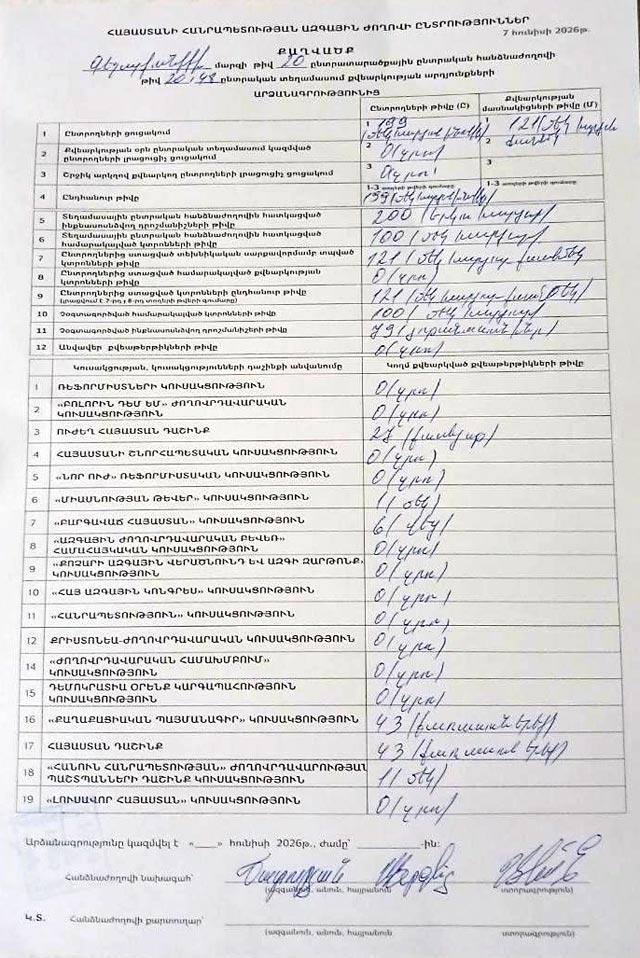 ՀԱՅԱՍՏԱՆԻ ՀԱՆՐԱՊԵՏՈՒԹՅԱՆ ԱԶԳԱՅԻՆ ԺՈՂՈՎԻ ԸՆՏՐՈՒԹՅՈՒՆՆԵՐ
7 հունիսի 2026թ.
ՔԱՂՎԱԾՔ
Գեղարքունիքի մարզի թիվ 20 ընտրատարածքային ընտրական հանձնաժողովի
թիվ 20/48 ընտրական տեղամասում քվեարկության արդյունքների
ԱՐՁԱՆԱԳՐՈՒԹՅՈՒՆԻՑ
Ընտրողների թիվը (Ը) Քվեարկության մասնակիցների թիվը (Մ)
1 Ընտրողների ցուցակում 1 199 1 121
2 Քվեարկության օրն ընտրական տեղամասում կազմված ընտրողների լրացուցիչ ցուցակում 2 0 (զրո) 2
3 Շրջիկ արկղով քվեարկող ընտրողների լրացուցիչ ցուցակում 3 0 (զրո) 3
4 Ընդհանուր թիվը 1-3 տողերի թվերի գումարը 199 1-3 տողերի թվերի գումարը
5 Տեղամասային ընտրական հանձնաժողովին հատկացված ինքնասոսնձվող դրոշմանիշների թիվը 200 (երկու հարյուր)
6 Տեղամասային ընտրական հանձնաժողովին հատկացված համարակալված կտրոնների թիվը 100 (մեկ հարյուր)
7 Ընտրողներից ստացված տեխնիկական սարքավորմամբ տպված կտրոնների թիվը 121 (մեկ հարյուր քսանմեկ)
8 Ընտրողներից ստացված համարակալված քվեարկության կտրոնների թիվը 0 (զրո)
9 Ընտրողներից ստացված կտրոնների ընդհանուր թիվը (լրացվում է 7-րդ և 8-րդ տողերի թվերի գումարը) 121 (մեկ հարյուր քսանմեկ)
10 Չօգտագործված համարակալված կտրոնների թիվը 100 (մեկ հարյուր)
11 Չօգտագործված ինքնասոսնձվող դրոշմանիշերի թիվը 79
12 Անվավեր քվեաթերթիկների թիվը 0 (զրո)
Կուսակցության, կուսակցությունների դաշինքի անվանումը Կողմ քվեարկված քվեաթերթիկների թիվը
1 ՌԵՖՈՐՄԻՍՏՆԵՐԻ ԿՈՒՍԱԿՑՈՒԹՅՈՒՆ 0 (զրո)
2 «ԲՈԼՈՐԻՆ ԴԵՄ ԵՄ» ԺՈՂՈՎՐԴԱՎԱՐԱԿԱՆ ԿՈՒՍԱԿՑՈՒԹՅՈՒՆ 0 (զրո)
3 ՈՒԺԵՂ ՀԱՅԱՍՏԱՆ ԴԱՇԻՆՔ 27 (քսանյոթ)
4 ՀԱՅԱՍՏԱՆԻ ՇՆՈՐՀԱՊԵՏԱԿԱՆ ԿՈՒՍԱԿՑՈՒԹՅՈՒՆ 0 (զրո)
5 «ՆՈՐ ՈՒԺ» ՌԵՖՈՐՄԻՍՏԱԿԱՆ ԿՈՒՍԱԿՑՈՒԹՅՈՒՆ 0 (զրո)
6 «ՄԻԱՍՆՈՒԹՅԱՆ ԹԵՎԵՐ» ԿՈՒՍԱԿՑՈՒԹՅՈՒՆ 1 (մեկ)
7 «ԲԱՐԳԱՎԱՃ ՀԱՅԱՍՏԱՆ» ԿՈՒՍԱԿՑՈՒԹՅՈՒՆ 6 (վեց)
8 «ԱԶԳԱՅԻՆ ԺՈՂՈՎՐԴԱՎԱՐԱԿԱՆ ԲԵՎԵՌ» ՀԱՄԱՀԱՅԿԱԿԱՆ ԿՈՒՍԱԿՑՈՒԹՅՈՒՆ 0 (զրո)
9 «ՔՈՉԱՐԻ ԱԶԳԱՅԻՆ ՎԵՐԱԾՆՈՒՆԴ ԵՎ ԱԶԳԻ ԶԱՐԹՈՆՔ» ԿՈՒՍԱԿՑՈՒԹՅՈՒՆ 0 (զրո)
10 «ՀԱՅ ԱԶԳԱՅԻՆ ԿՈՆԳՐԵՍ» ԿՈՒՍԱԿՑՈՒԹՅՈՒՆ 0 (զրո)
11 «ՀԱՆՐԱՊԵՏՈՒԹՅՈՒՆ» ԿՈՒՍԱԿՑՈՒԹՅՈՒՆ 0 (զրո)
12 ՔՐԻՍՏՈՆԵԱ-ԺՈՂՈՎՐԴԱՎԱՐԱԿԱՆ ԿՈՒՍԱԿՑՈՒԹՅՈՒՆ 0 (զրո)
14 «ԺՈՂՈՎՐԴԱՎԱՐԱԿԱՆ ՀԱՄԱԽՄԲՈՒՄ» ԿՈՒՍԱԿՑՈՒԹՅՈՒՆ 0 (զրո)
15 ԴԵՄՈԿՐԱՏԻԱ ՕՐԵՆՔ ԿԱՐԳԱՊԱՀՈՒԹՅՈՒՆ ԿՈՒՍԱԿՑՈՒԹՅՈՒՆ 0 (զրո)
16 «ՔԱՂԱՔԱՑԻԱԿԱՆ ՊԱՅՄԱՆԱԳԻՐ» ԿՈՒՍԱԿՑՈՒԹՅՈՒՆ 43 (քառասուներեք)
17 ՀԱՅԱՍՏԱՆ ԴԱՇԻՆՔ 43 (քառասուներեք)
18 «ՀԱՆՈՒՆ ՀԱՆՐԱՊԵՏՈՒԹՅԱՆ» ԺՈՂՈՎՐԴԱՎԱՐՈՒԹՅԱՆ ՊԱՇՏՊԱՆՆԵՐԻ ԴԱՇԻՆՔ ԿՈՒՍԱԿՑՈՒԹՅՈՒՆ 1 (մեկ)
19 «ԼՈՒՍԱՎՈՐ ՀԱՅԱՍՏԱՆ» ԿՈՒՍԱԿՑՈՒԹՅՈՒՆ 0 (զրո)
Արձանագրությունը կազմվել է «___» հունիսի 2026թ., ժամը՝ ________-ին:
Հանձնաժողովի նախագահ՝
(ազգանուն, անուն, հայրանուն) (ստորագրություն)
Կ.Տ. Հանձնաժողովի քարտուղար՝
(ազգանուն, անուն, հայրանուն) (ստորագրություն)